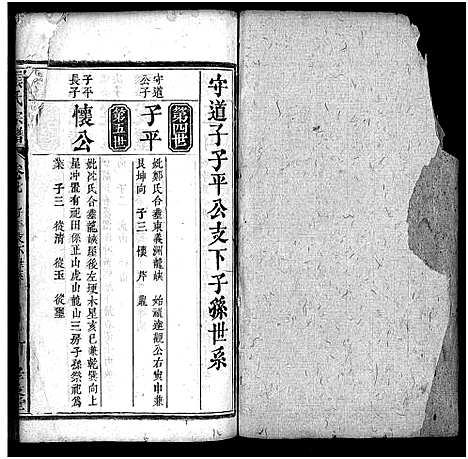 守道子子平公支下子孫世系
第四世
守道公子
子平
妣鄭氏合塟東義洲龍族 始祖達觀公右寅申兼
艮坤向 子三 懷 芹 
第五世
子平長子
懷公
妣沈氏合塟龍族屋後左埂木星亥巳兼乾巽向上
星冲置有祀田係正山虎山龍山三房子孫祭祀為
業 子三 從清 從玉 從
氏宗譜